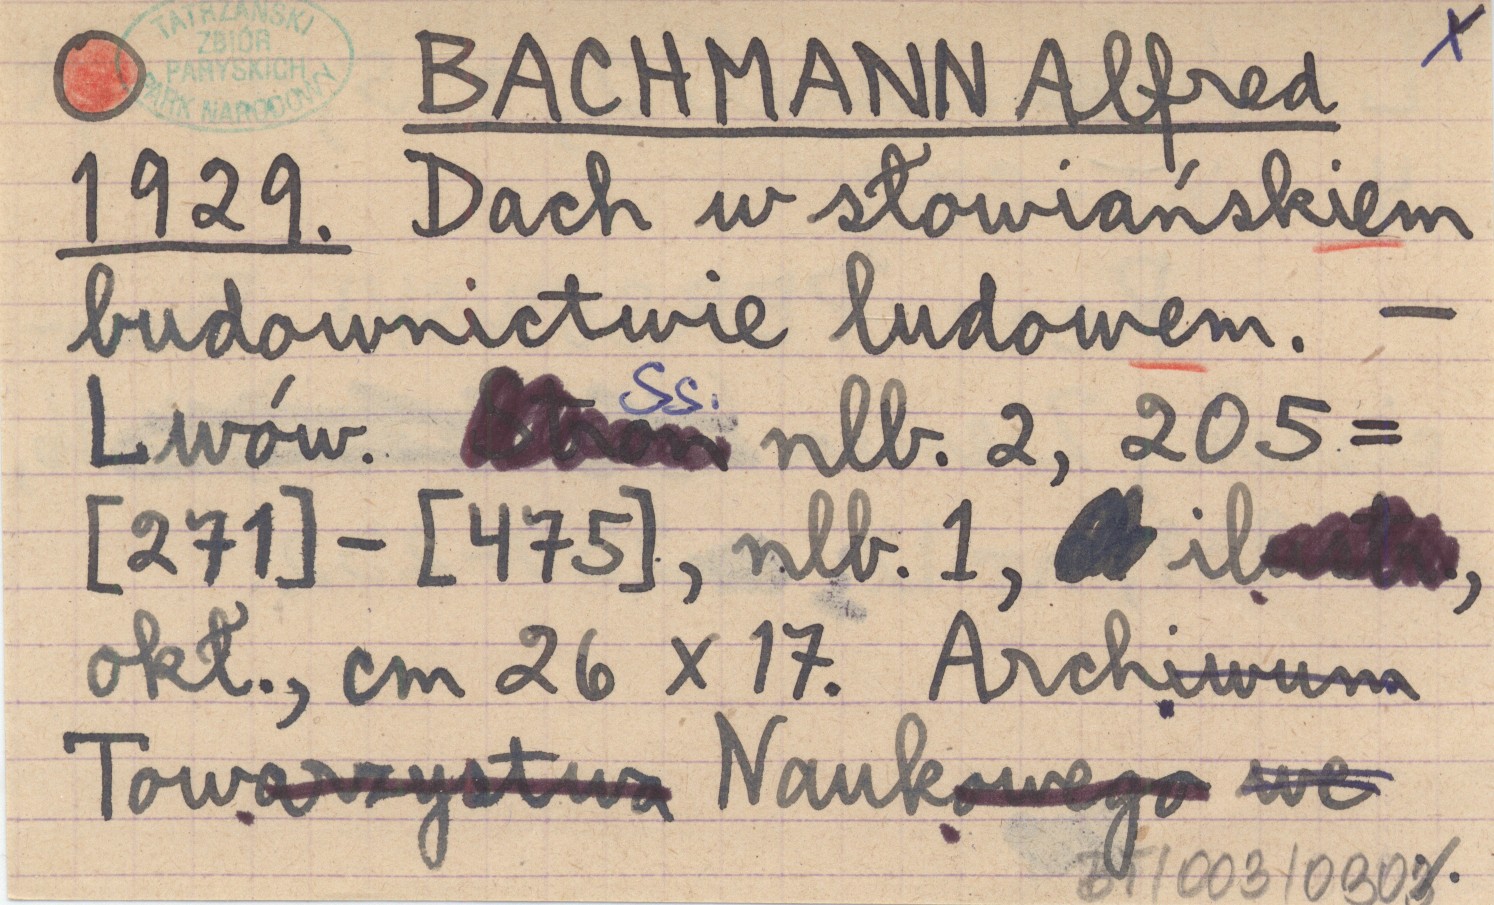 TATRZAŃSKI
ZBIÓR
PARYSKICH
PARK NARODOWY
x
BACHMANN Alfred
1929. Dach w słowiańskiem
budownictwie ludowem. —
Lwów. Ss. nlb. 2, 205 =
[271] - [475], nlb. 1, il.,
okł., cm 26 x 17. Archiwum
Towarzystwa Naukowego we